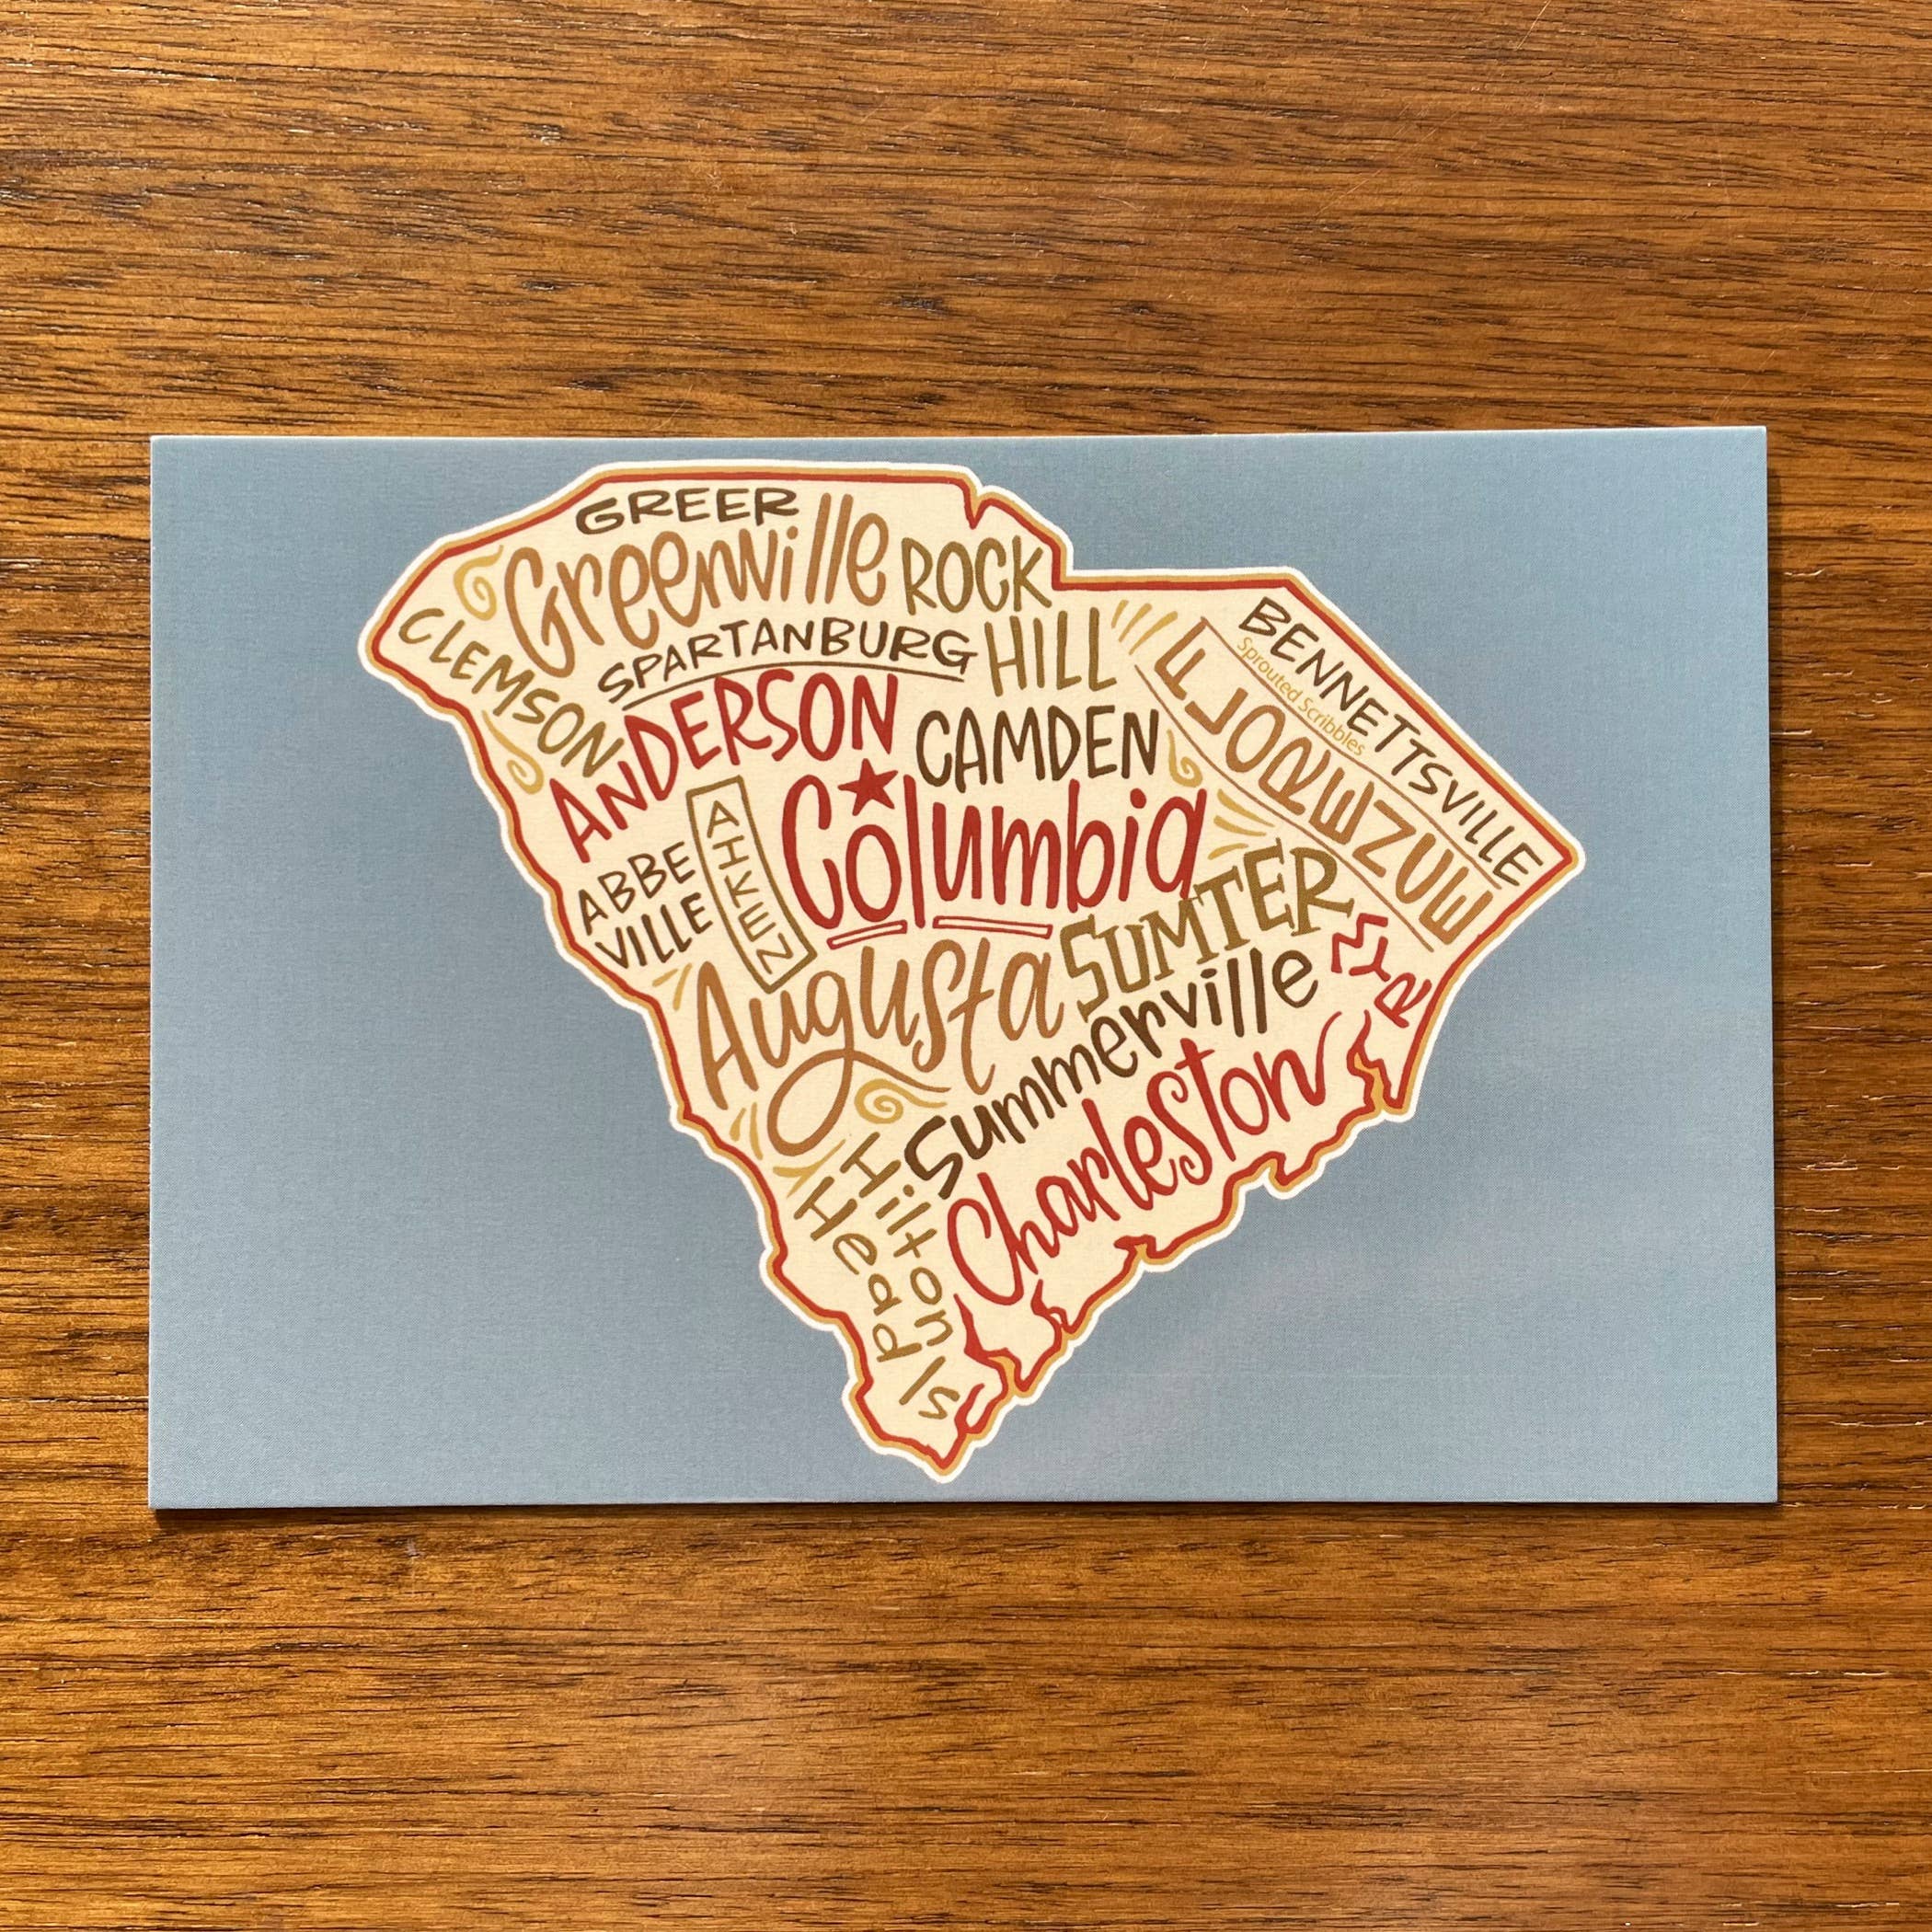 GREER
Greenville
ROCK
HILL
CLEMSON
SPARTANBURG
ANDERSON
CAMDEN
BENNETTSVILLE
Sprouted Scribbles
FLORENCE
Columbia
AIKEN
ABBE
VILLE
SUMTER
MYR
Augusta
Summerville
Charleston
Hilton
Head Is